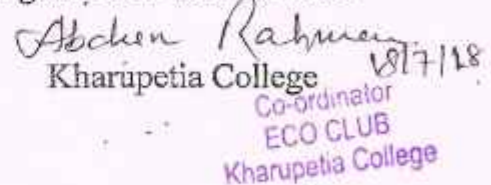 Rahman
18/7/18
Kharupetia College
Co-ordinator
ECO CLUB
Kharupetia College